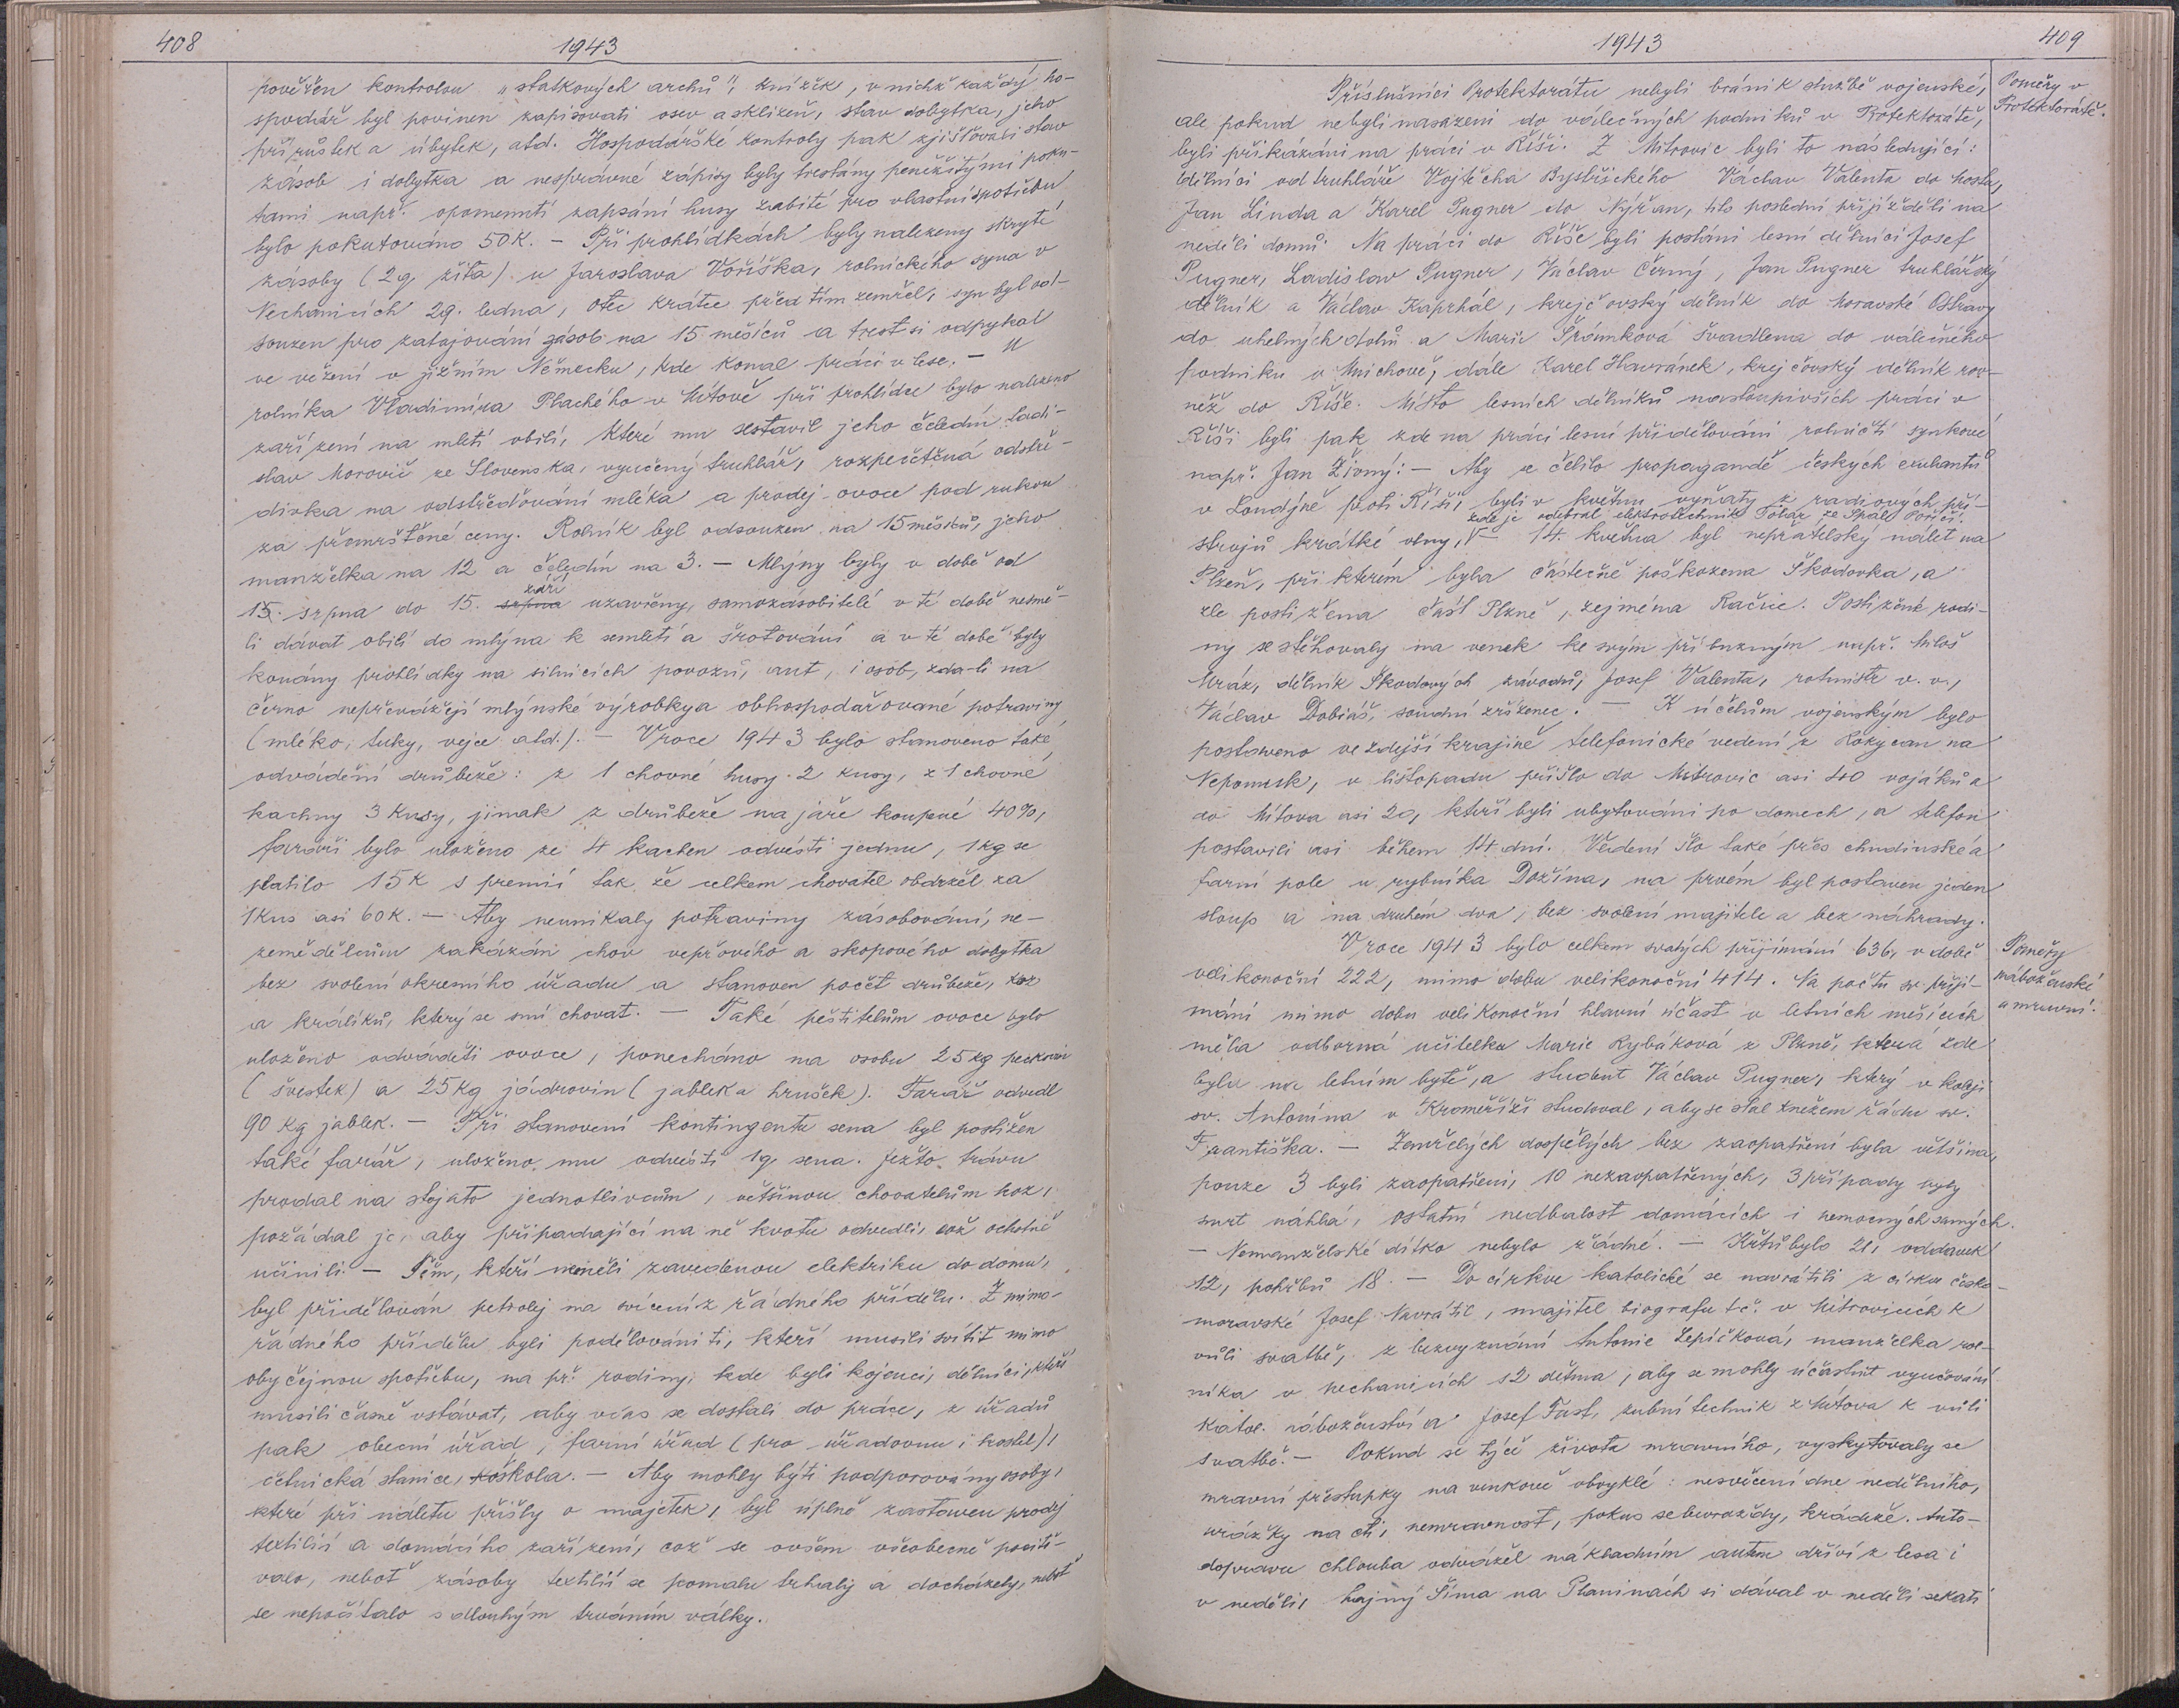 408
1943
pověřen kontrolou „statkových archů", knížek, v nichž každý ho-
spodář byl povinen zapisovati osev a sklizeň, stav dobytka, jeho
přírůstek a úbytek, atd. Hospodářské kontroly pak zjišťovali stav
zásob i dobytka a nesprávné zápisy byly trestány peněžitými poku-
tami např. opomenutí zapsání husy zabité pro vlastní spotřebu
bylo pokutováno 50 K. – Při prohlídkách byly nalezeny skryté
zásoby (2 q žita) u Jaroslava Voříška, rolnického syna v
Nechanicích 29. ledna, otec krátce před tím zemřel, syn byl od-
souzen pro zatajování zásob na 15 měsíců a trest si odpykal
ve vězení v jižním Německu, kde konal práci v lese. – U
rolníka Vladimíra Plachého v Mítově při prohlídce bylo nalezeno
zařízení na mletí obilí, které mu sestavil jeho čeledín Ladi-
slav Morovič ze Slovenska, vyučený truhlář, rozpečetěná odstře-
divka na odstřeďování mléka a prodej ovoce pod rukou
za přemrštěné ceny. Rolník byl odsouzen na 15 měsíců, jeho
manželka na 12 a čeledín na 3. – Mlýny byly v době od
září
15. srpna do 15. srpna uzavřeny, samozásobitelé v té době nesmě-
li dávat obilí do mlýna k semletí a šrotování a v té době byly
konány prohlídky na silnicích povozů, aut, i osob, zda-li na
černo nepřevážejí mlýnské výrobky a obhospodařované potraviny
(mléko, tuky, vejce atd.). – V roce 1943 bylo stanoveno také
odvádění drůbeže: z 1 chovné husy 2 kusy, z 1 chovné
kachny 3 kusy, jinak z drůbeže na jaře koupené 40%,
faráři bylo uloženo ze 4 kachen odvésti jednu, 1 kg se
platilo 15 K s premií tak, že celkem chovatel obdržel za
1 kus asi 60 K. – Aby neunikaly potraviny zásobování, ne-
zemědělcům zakázán chov vepřového a skopového dobytka
bez svolení okresního úřadu a stanoven počet drůbeže, koz
a králíků, který se smí chovat. – Také pěstitelům ovoce bylo
uloženo odváděti ovoce, ponecháno na osobu 25 kg peckovin
(švestek) a 25 kg jádrovin (jablek a hrušek). Farář odvedl
90 kg jablek. – Při stanovení kontingentu sena byl postižen
také farář, uloženo mu odvésti 1 q sena. Ježto trávu
prodal na stojato jednotlivcům, většinou chovatelům koz,
požádal je, aby připadající na ně kvotu odvedli, což ochotně
učinili. – Těm, kteří neměli zavedenou elektriku do domu,
byl přidělován petrolej na svícení z řádného přídělu. Z mimo-
řádného přídělu byli podělováni ti, kteří musili svítit mimo
obyčejnou spotřebu, na př. rodiny, kde byli kojenci, dělníci, kteří
musili časně vstávat, aby včas se dostali do práce, z úřadů
pak obecní úřad, farní úřad (pro úřadovnu i kostel),
četnická stanice, škola. – Aby mohly býti podporovány osoby,
které při náletu přišly o majetek, byl úplně zastaven prodej
textilií a domácího zařízení, což se ovšem všeobecně pociťo-
valo, neboť zásoby textilií se pomalu trhaly a docházely, neboť
se nepočítalo s dlouhým trváním války.
1943
409
Poměry v
Protektorátě.
Příslušníci Protektorátu nebyli bráni k službě vojenské,
ale pokud nebyli nasazeni do válečných podniků v Protektorátě,
byli přikázáni na práci v Říši. Z Mitrovic byli to následující:
dělníci od truhláře Vojtěcha Bystřického Václav Valenta do Mostu,
Jan Linda a Karel Pugner do Nýřan, tito poslední přijížděli na
neděli domů. Na práci do Říše byli posláni lesní dělníci Josef
Pugner, Ladislav Pugner, Václav Černý, Jan Pugner truhlářský
dělník a Václav Kaprhál, krejčovský dělník do Moravské Ostravy
do uhelných dolů a Marie Šrámková švadlena do válečného
podniku v Mnichově, dále Karel Havránek, krejčovský dělník rov-
něž do Říše. Místo lesních dělníků nastoupivších práci v
Říši byli pak zde na práci lesní přidělováni rolničtí synkové
např. Jan Živný. – Aby se čelilo propagandě českých emigrantů
v Londýně proti Říši, byli v květnu vyňaty z radiových pří-
zde je odebral elektrotechnik Tolar ze Spál. Poříčí.
strojů krátké vlny, – 14. května byl nepřátelský nálet na
Plzeň, při kterém byla částečně poškozena Škodovka, a
zle postižena část Plzně, zejména Račice. Postižené rodi-
ny se stěhovaly na venek ke svým příbuzným např. Miloš
Mráz, dělník Škodových závodů, Josef Valenta, rotmistr v. v.,
Václav Dobiáš, soudní zřízenec. – K účelům vojenským bylo
postaveno ve zdejší krajině telefonické vedení z Rokycan na
Nepomuk, v listopadu přišlo do Mitrovic asi 40 vojáků a
do Mítova asi 20, kteří byli ubytováni po domech, a telefon
postavili asi během 14 dní. Vedení šlo také přes chudinské a
farní pole u rybníka Dožína, na prvém byl postaven jeden
sloup a na druhém dva, bez svolení majitele a bez náhrady.
Poměry
náboženské
a mravní.
V roce 1943 bylo celkem svatých přijímání 636, v době
velikonoční 222, mimo dobu velikonoční 414. Na počtu sv. přijí-
mání mimo dobu velikonoční hlavní účast v letních měsících
měla odborná učitelka Marie Rybáková z Plzně, která zde
byla na letním bytě, a student Václav Pugner, který v koleji
sv. Antonína v Kroměříži studoval, aby se stal knězem řádu sv.
Františka. – Zemřelých dospělých bez zaopatření byla většina,
pouze 3 byli zaopatřeni, 10 nezaopatřených, 3 případy byly
smrt náhlá, ostatní nedbalost domácích i nemocných samých.
– Nemanželské dítko nebylo žádné. – Křtů bylo 21, oddavek
12, pohřbů 18. – Do církve katolické se navrátili z církve česko-
moravské Josef Navrátil, majitel biografu t. č. v Mítrovicích k
vůli svatbě, z bezvyznání Antonie Lepičková, manželka rol-
níka v Nechanicích s 2 dětma, aby se mohly účastnit vyučování
katol. náboženství a Josef Fast, zubní technik z Mítova k vůli
svatbě. – Pokud se týče života mravního, vyskytovaly se
mravní přestupky na venkově obvyklé: nesvěcení dne nedělního,
urážky na cti, nemravnost, pokus sebevraždy, krádeže. Auto-
doprava Chlouba odvážel nákladním autem dříví z lesa i
v neděli, hajný Šíma na Planinách si dával v neděli sekati